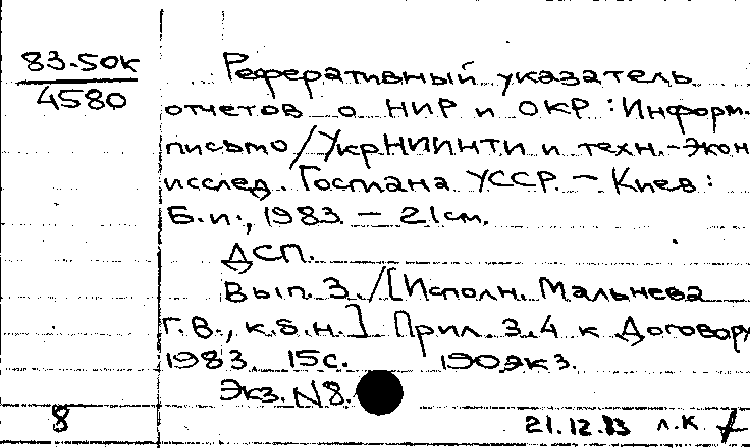 83-50к
4580
Реферативный указатель
отчетов о НИР и ОКР : Информ.
письмо / УкрНИИНТИ и техн.-экон
исслед. Госплана УССР. – Киев :
Б.и., 1983 – 21см.
ДСП.
Вып. 3. / [Исполн. Мальнева
Г.В., к.б.н.] Прил. 3.4 к Договору
1983. 15с. 190экз.
Экз. N8.
8
21.12.83 л.к